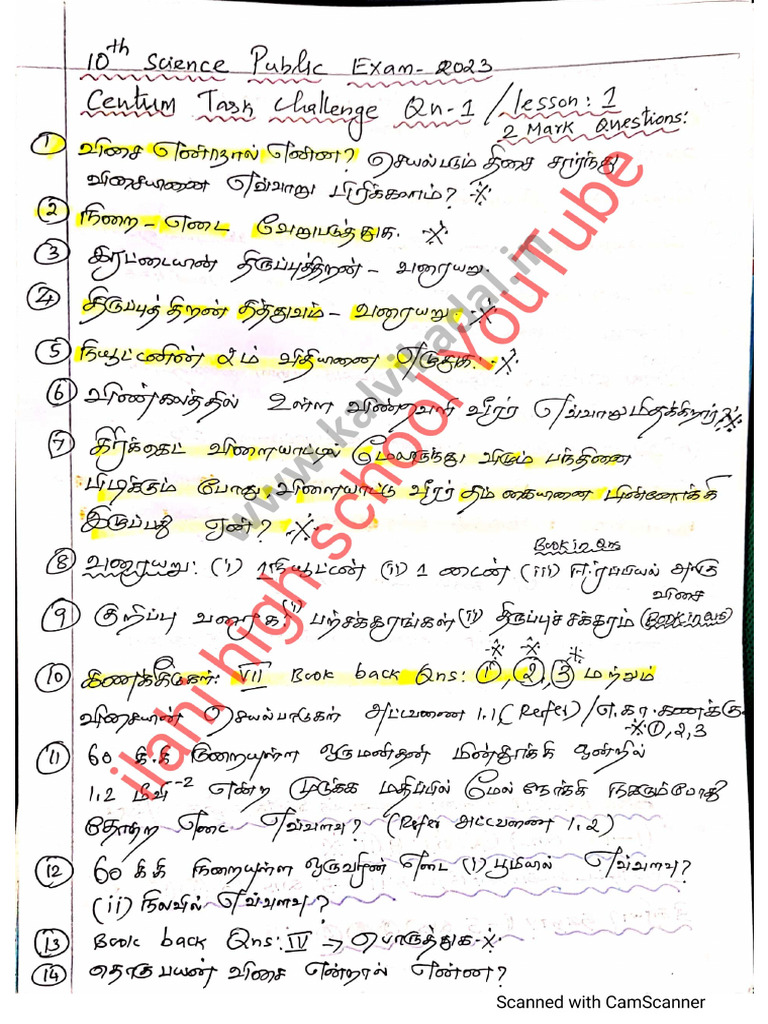 10th Science Public Exam-2023
Centum Task Challenge Qn-1 / lesson: 1
2 Mark Questions:
1 விசை என்றால் என்ன? செயல்படும் திசை சார்ந்து
விசையினை எவ்வாறு பிரிக்கலாம்?
2 நிறை - எடை வேறுபடுத்துக.
3 இரட்டையின் திருப்புத்திறன் - வரையறு.
4 திருப்புத்திறன் தத்துவம் - வரையறு
5 நியூட்டனின் 2ம் விதியினை எழுதுக.
6 விண்கலத்தில் உள்ள விண்வெளி வீரர் எவ்வாறு மிதக்கிறார்
7 கிரிக்கெட் விளையாட்டில் மேலிருந்து விழும் பந்தினை
பிடிக்கும் போது, விளையாட்டு வீரர் தம் கையினை பின்னோக்கி
இழுப்பது ஏன்?
Book in Qns
8 வரையறு: (i) 1 நியூட்டன் (ii) 1 டைன் (iii) ஈர்ப்பியல் அலகு
விசை
9 குறிப்பு வரைக: (i) பற்சக்கரங்கள் (ii) திருப்புச் சக்கரம் (Book in Qns)
10 கணக்கீடுகள்: VII Book back Qns: 1, 2, 3 மற்றும்
விசையின் செயல்பாடுகள் அட்டவணை 1.1 (Refer) / எ.கா. கணக்கு
1, 2, 3
11 60 கி.கி நிறையுள்ள ஒரு மனிதன் மின்தூக்கி ஒன்றில்
1.2 மீவி-2 என்ற முடுக்க மதிப்பில் மேல் நோக்கி நகரும்போது
தோற்ற எடை எவ்வளவு? (Refer அட்டவணை 1.2)
12 60 கி.கி நிறையுள்ள ஒருவரின் எடை (i) பூமியில் எவ்வளவு?
(ii) நிலவில் எவ்வளவு?
13 Book back Qns: IV → பொருத்துக
14 தொகுபயன் விசை என்றால் என்ன?
www.kalvikadal.in
ilahi high school YouTube
Scanned with CamScanner